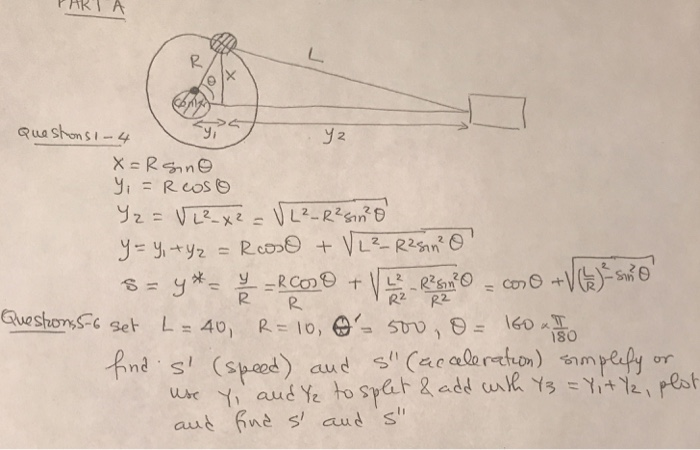 PART A
R
L
θ
x
y₁
y₂
Questions 1-4
x = R sinθ
y₁ = R cosθ
y₂ = √(L²-x²) = √(L²-R²sin²θ)
y = y₁+y₂ = Rcosθ + √(L²-R²sin²θ)
s = y* = y/R = Rcosθ/R + √(L²/R² - R²sin²θ/R²) = cosθ + √((L/R)² - sin²θ)
Questions 5-6 set L = 40, R = 10, θ' = 500, θ = 160 × π/180
find s' (speed) and s'' (acceleration) simplify or
use Y₁ and Y₂ to split & add with Y3 = Y₁+Y₂, plot
and find s' and s''